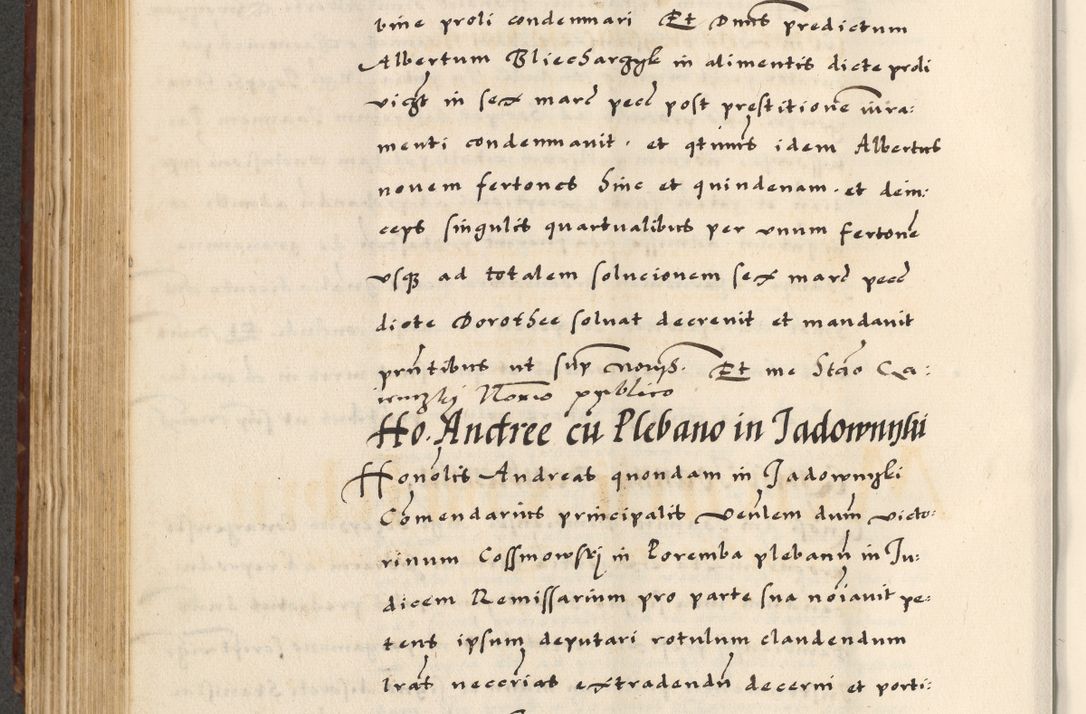 bine proli condemnari Et Dnus predictum
Albertum Bliecharczyk in alimentis dicte proli
vigt in sex marc pecc post prestitionem iura:
menti condemnavit. et qtinus idem Albertus
novem fertones hinc et quindenam. et dein:
ceps singulis quartualibus per unum fertone
usq ad totalem solucionem sex marc pecc
dicte Dorothee solvat decrevit et mandavit
prntibus ut sup novis. Et me Stao
Norio publico
Ho. Andree cu Plebano in Jadownyki
Honolis Andreas quondam in Jadownyki
Comendarius principalis Venlem dum Victo:
rinum Cossmowskj in Poremba plebann in Ju:
dicem Remissarium pro parte sua noiavit pe:
tens ipsum deputari rotulum claudendum
lrat necoriat extradendn decerni et porti: